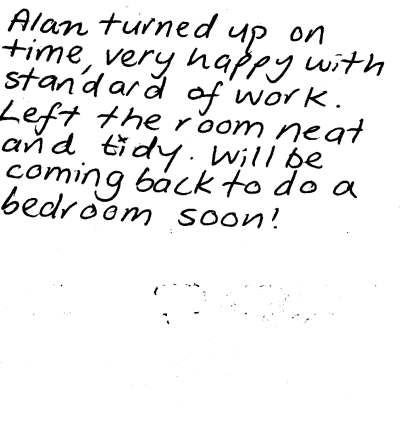 Alan turned up on
time, very happy with
standard of work.
Left the room neat
and tidy. Will be
coming back to do a
bedroom soon!